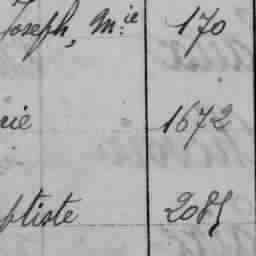 Joseph, M.ie 170
rie 1672
ptiste 2085